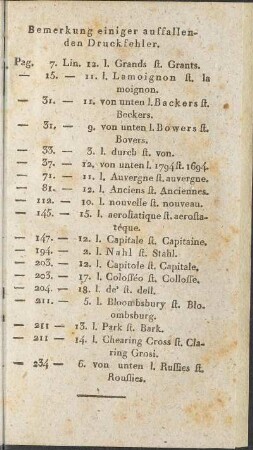 Bemerkung einiger auffallen-
den Druckfehler.
Pag. 7. Lin. 12. l. Grands ſt. Grants.
— 15. — 11. l. Lamoignon ſt. la
moignon.
— 31. — 11. von unten l. Backers ſt.
Beckers.
— 31. — 9. von unten l. Bowers ſt.
Bovers.
— 33. — 3. l. durch ſt. von.
— 37. — 12. von unten l. 1794 ſt. 1694.
— 71. — 11. l. Auvergne ſt. auvergne.
— 81. — 12. l. Anciens ſt. Anciennes.
— 112. — 10. l. nouvelle ſt. nouveau.
— 145. — 15. l. aeroſtatique ſt. aeroſta-
téque.
— 147. — 12. l. Capitale ſt. Capitaine.
— 194. — 2. l. Nahl ſt. Stahl.
— 203. — 12. l. Capitole ſt. Capitale,
— 203. — 17. l. Coloſſéo ſt. Colloſſe.
— 204. — 18. l. de' ſt. dell.
— 211. — 5. l. Bloombsbury ſt. Blo
ombsburg.
— 211 — 13. l. Park ſt. Bark.
— 211 — 14. l. Chearing Cross ſt. Cla
ring Grosi.
— 234 — 6. von unten l. Ruſſies ſt.
Rouſſies.